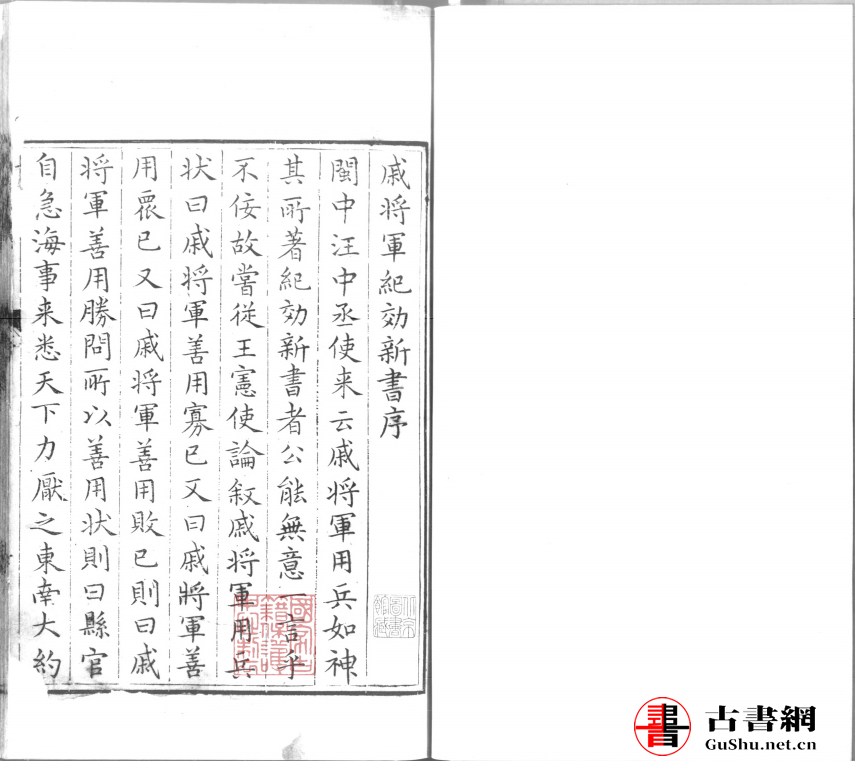 戚将軍紀効新書序
閩中汪中丞使来云戚将軍用兵如神
其所著紀効新書者公能無意一言乎
不佞故嘗従王憲使論叙戚将軍用兵
状曰戚将軍善用寡已又曰戚将軍善
用衆已又曰戚将軍善用敗已則曰戚
将軍善用勝問所以善用状則曰縣官
自急海事来悉天下力厭之東南大約
古書網
GuShu.net.cn